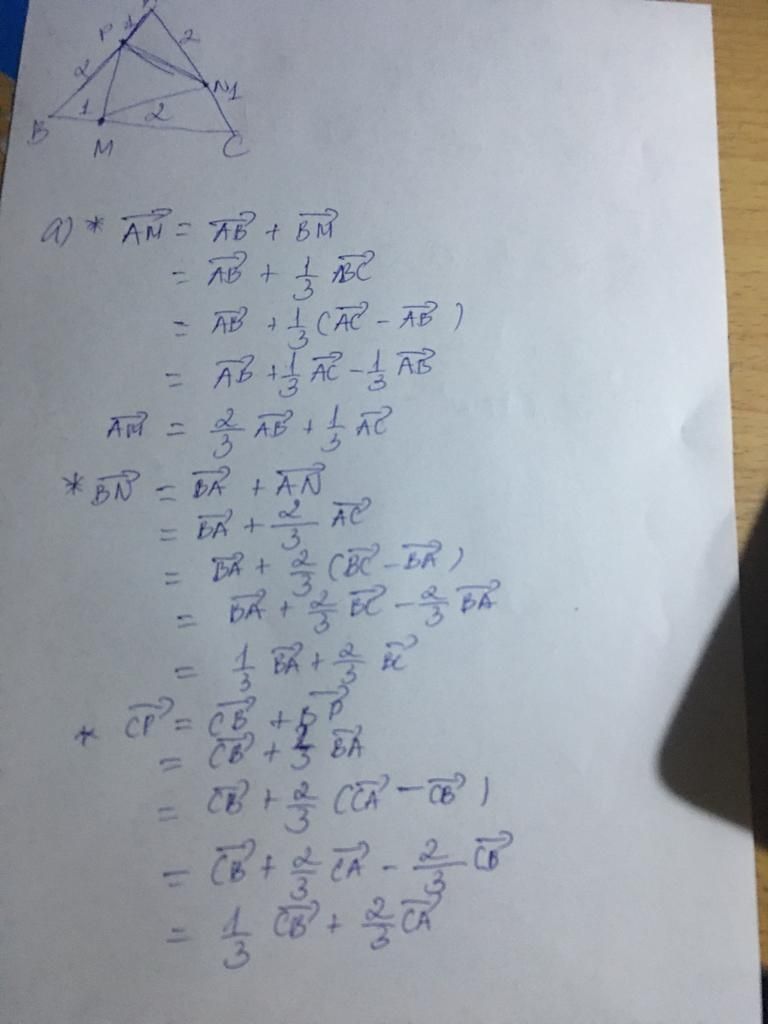 A
P 1 2
2 N 1
B 1 2
M C
a) * \overrightarrow{AM} = \overrightarrow{AB} + \overrightarrow{BM}
= \overrightarrow{AB} + \frac{1}{3} \overrightarrow{BC}
= \overrightarrow{AB} + \frac{1}{3} (\overrightarrow{AC} - \overrightarrow{AB})
= \overrightarrow{AB} + \frac{1}{3} \overrightarrow{AC} - \frac{1}{3} \overrightarrow{AB}
\overrightarrow{AM} = \frac{2}{3} \overrightarrow{AB} + \frac{1}{3} \overrightarrow{AC}
* \overrightarrow{BN} = \overrightarrow{BA} + \overrightarrow{AN}
= \overrightarrow{BA} + \frac{2}{3} \overrightarrow{AC}
= \overrightarrow{BA} + \frac{2}{3} (\overrightarrow{BC} - \overrightarrow{BA})
= \overrightarrow{BA} + \frac{2}{3} \overrightarrow{BC} - \frac{2}{3} \overrightarrow{BA}
= \frac{1}{3} \overrightarrow{BA} + \frac{2}{3} \overrightarrow{BC}
* \overrightarrow{CP} = \overrightarrow{CB} + \overrightarrow{BP}
= \overrightarrow{CB} + \frac{2}{3} \overrightarrow{BA}
= \overrightarrow{CB} + \frac{2}{3} (\overrightarrow{CA} - \overrightarrow{CB})
= \overrightarrow{CB} + \frac{2}{3} \overrightarrow{CA} - \frac{2}{3} \overrightarrow{CB}
= \frac{1}{3} \overrightarrow{CB} + \frac{2}{3} \overrightarrow{CA}